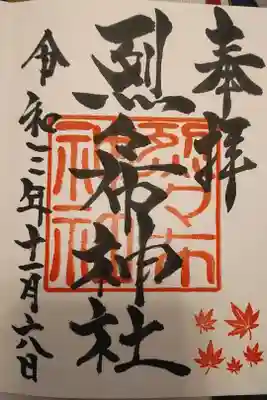 奉拝
烈々布神社
烈々布
神社
令和三年十一月六日